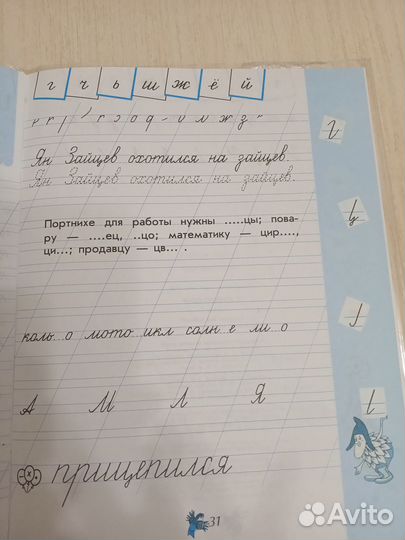 г ч ь ш ж ё й
Ян Зайцев охотился на зайцев.
Ян Зайцев охотился на зайцев.
Портнихе для работы нужны .....цы; пова-
ру — ....ец, ..цо; математику — цир....,
ци...; продавцу — цв... .
коль о мото икл солн е ли о
А М Л Я
прицепился
31
Avito